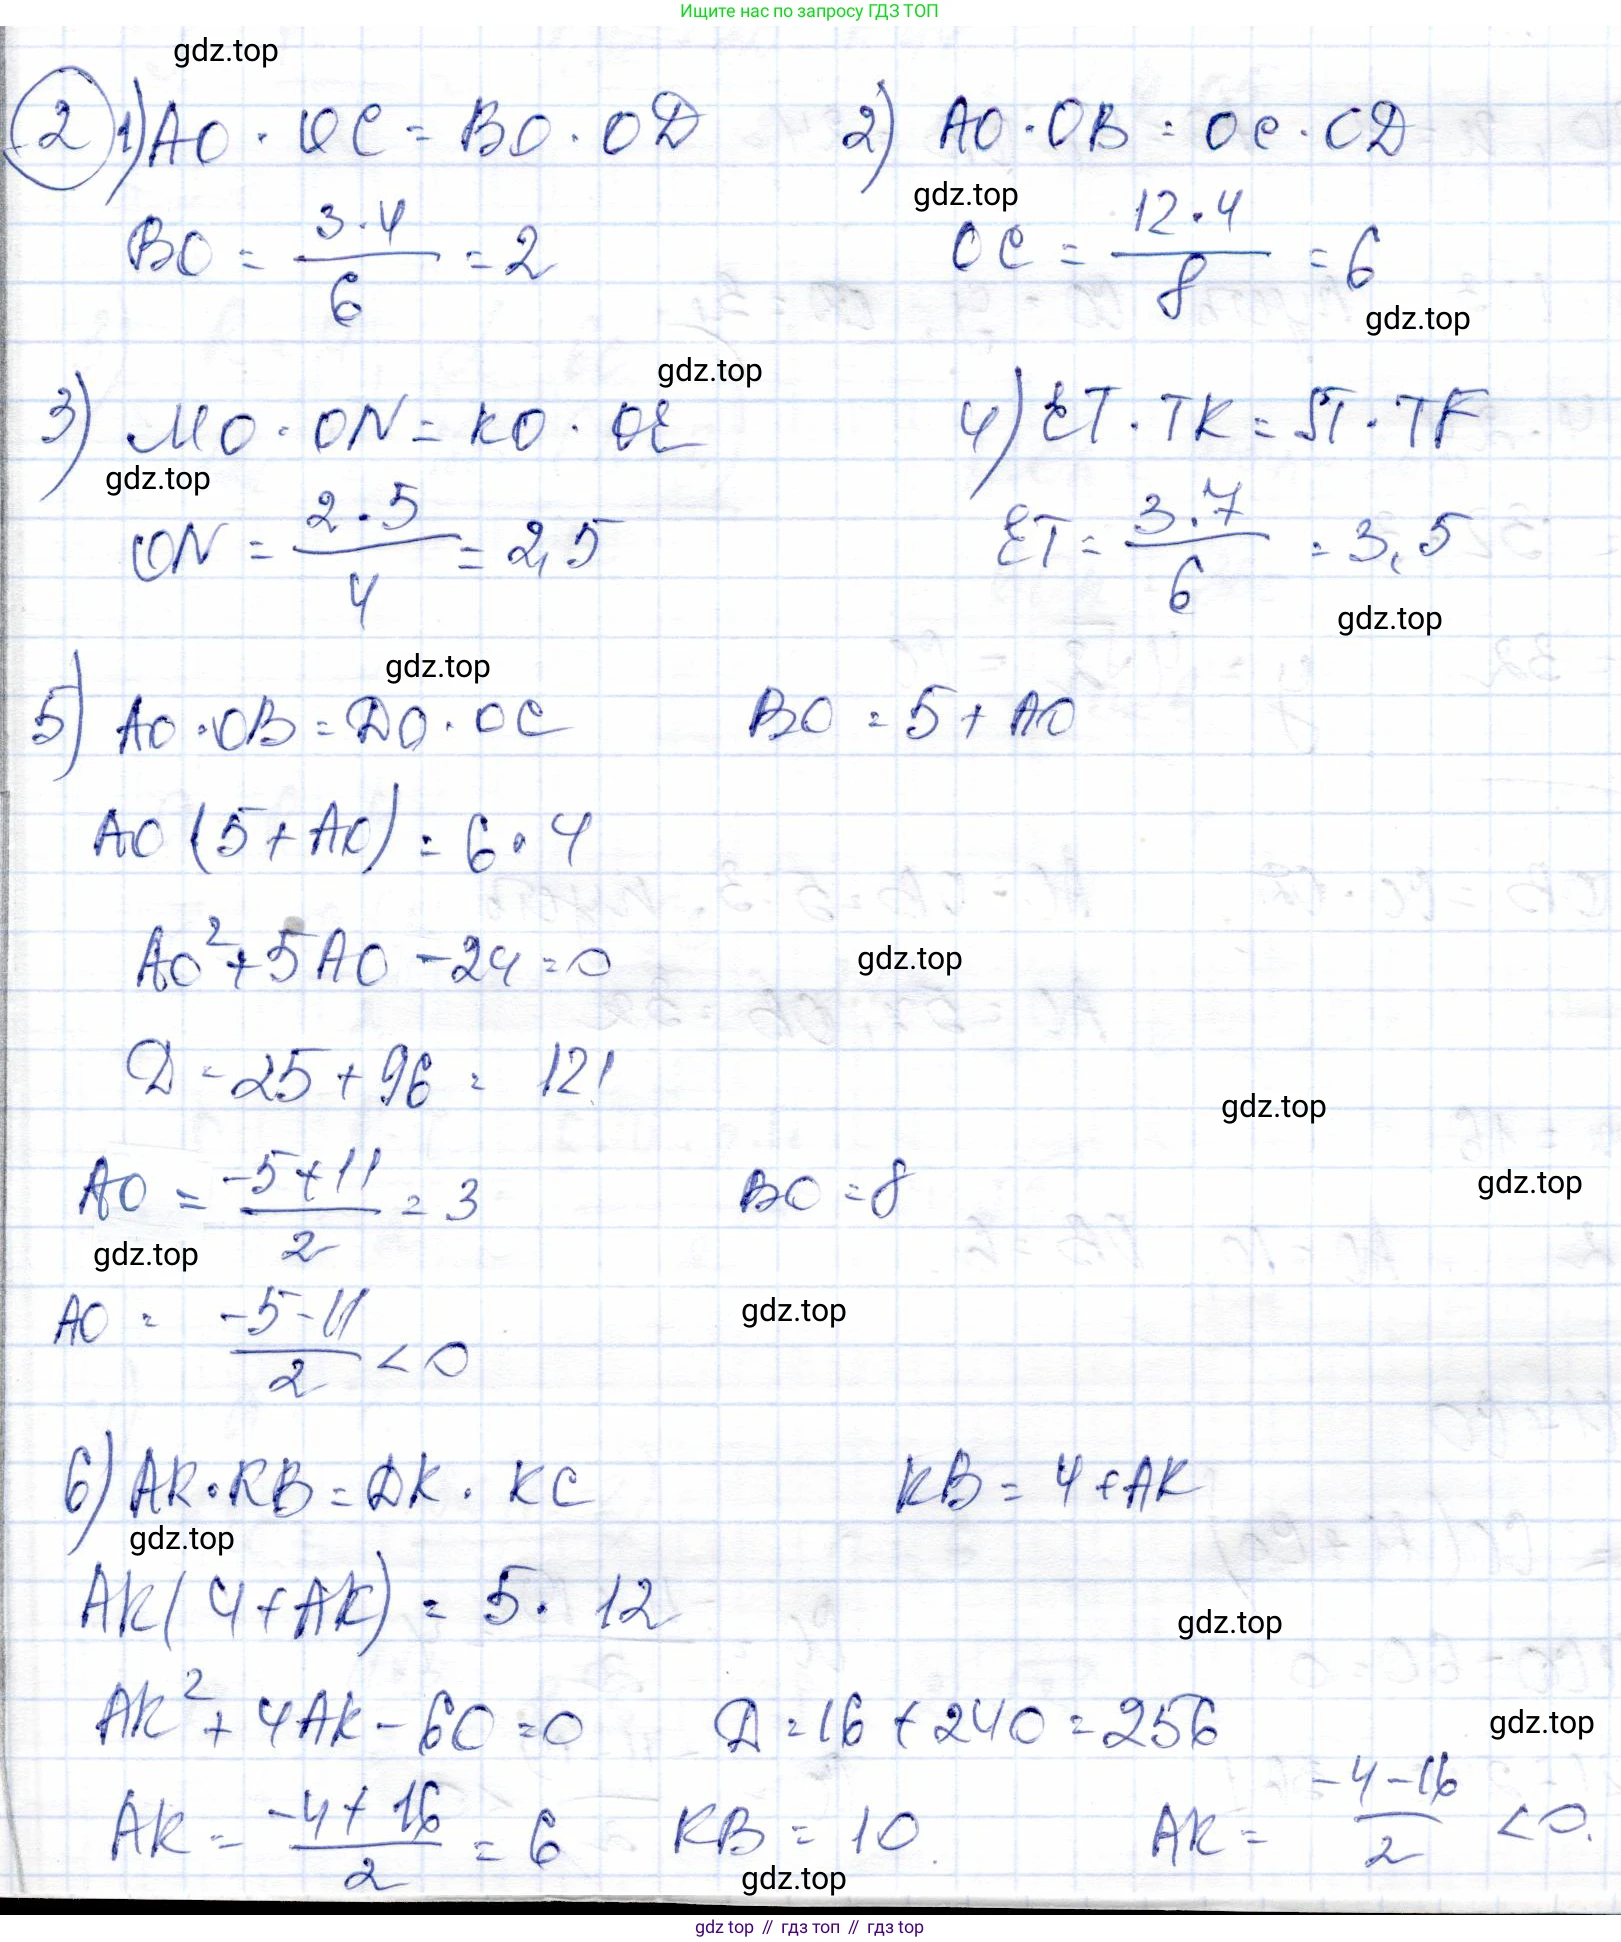 Ищите нас по запросу ГДЗ ТОП
gdz.top
2 1) AO · OC = BO · OD
2) AO · OB = OC · OD
gdz.top
BO = 3·4/6 = 2
OC = 12·4/8 = 6
gdz.top
gdz.top
3) MO · ON = KO · OE
4) ET · TK = ST · TF
gdz.top
ON = 2·5/4 = 2,5
ET = 3·7/6 = 3,5
gdz.top
gdz.top
5) AO · OB = DO · OC
BO = 5 + AO
AO (5 + AO) = 6 · 4
AO² + 5AO - 24 = 0
gdz.top
D = 25 + 96 = 121
gdz.top
AO = -5+11/2 = 3
BO = 8
gdz.top
gdz.top
AO = -5-11/2 < 0
gdz.top
6) AK · KB = DK · KC
KB = 4 + AK
gdz.top
AK (4 + AK) = 5 · 12
gdz.top
AK² + 4AK - 60 = 0
D = 16 + 240 = 256
gdz.top
AK = -4+16/2 = 6
KB = 10
AK = -4-16/2 < 0.
gdz.top
gdz top // гдз топ // гдз top